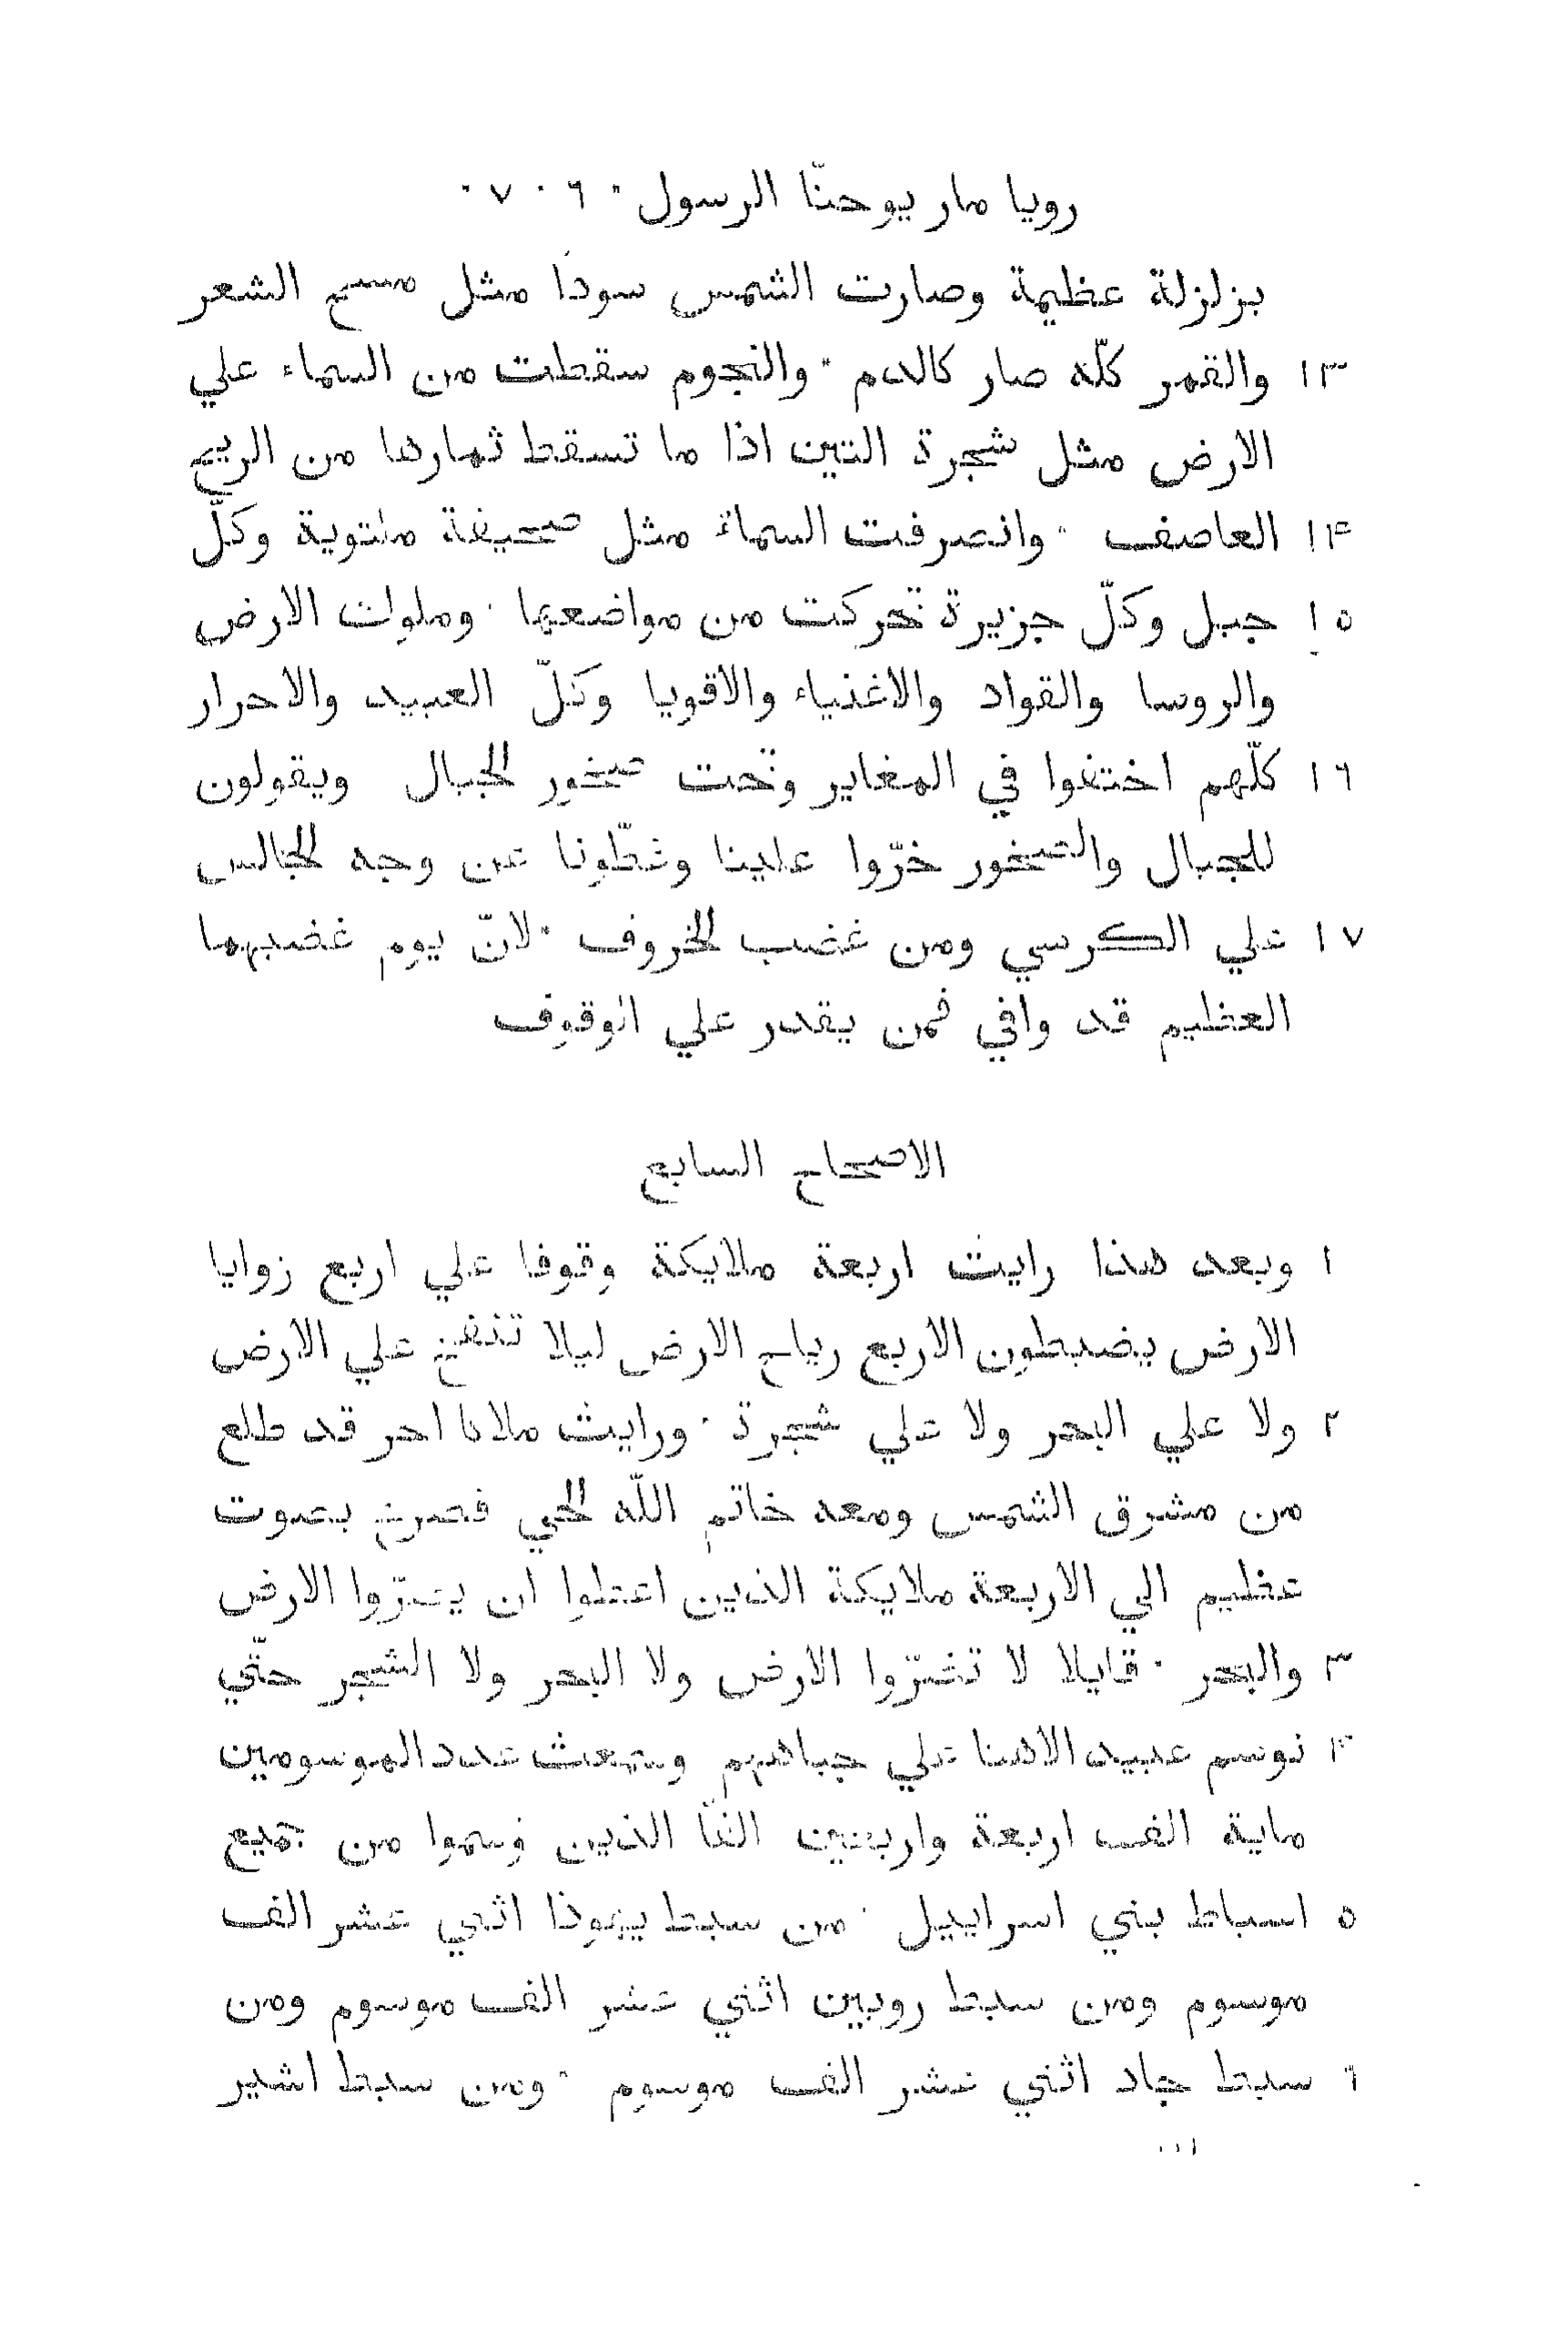 رويا مار يوحنّا الرسول ٠ ٦ ٠ ٧ ٠
بزلزلة عظيمة وصارت الشمس سودا مثل مسح الشعر
١٣ والقمر كلّه صار كالدم ٠ والنجوم سقطت من السماء علي
الارض مثل شجرة التين اذا ما تسقط ثمارها من الريح
١۴ العاصف ٠ وانصرفت السماء مثل صحيفة ملتوية وكلّ
١٥ جبل وكلّ جزيرة تحركت من مواضعها ٠ وملوك الارض
والروسا والقواد والاغنياء والاقويا وكلّ العبيد والاحرار
١٦ كلّهم اختفوا في المغاير وتحت صخور الجبال ويقولون
للجبال والصخور خرّوا علينا وغطّونا عن وجه الجالس
١٧ علي الكرسي ومن غضب الخروف ٠ لانّ يوم غضبهما
العظيم قد وافي فمن يقدر علي الوقوف
الاصحاح السابع
١ وبعد هذا رايت اربعة ملايكة وقوفا علي اربع زوايا
الارض يضبطون الاربع رياح الارض ليلا تنفخ علي الارض
٢ ولا علي البحر ولا علي شجرة ٠ ورايت ملاكا اخر قد طلع
من مشرق الشمس ومعه خاتم اللّه الحي فصرخ بصوت
عظيم الي الاربعة ملايكة الذين اعطوا ان يضرّوا الارض
٣ والبحر ٠ قايلا لا تضرّوا الارض ولا البحر ولا الشجر حتّي
۴ نوسم عبيد الاهنا علي جباههم وسمعت عدد الموسومين
ماية الف اربعة واربعين الفًا الذين وسموا من جميع
٥ اسباط بني اسراييل ٠ من سبط يهوذا اثني عشر الف
موسوم ومن سبط روبين اثني عشر الف موسوم ومن
٦ سبط جاد اثني عشر الف موسوم ٠ ومن سبط اشير